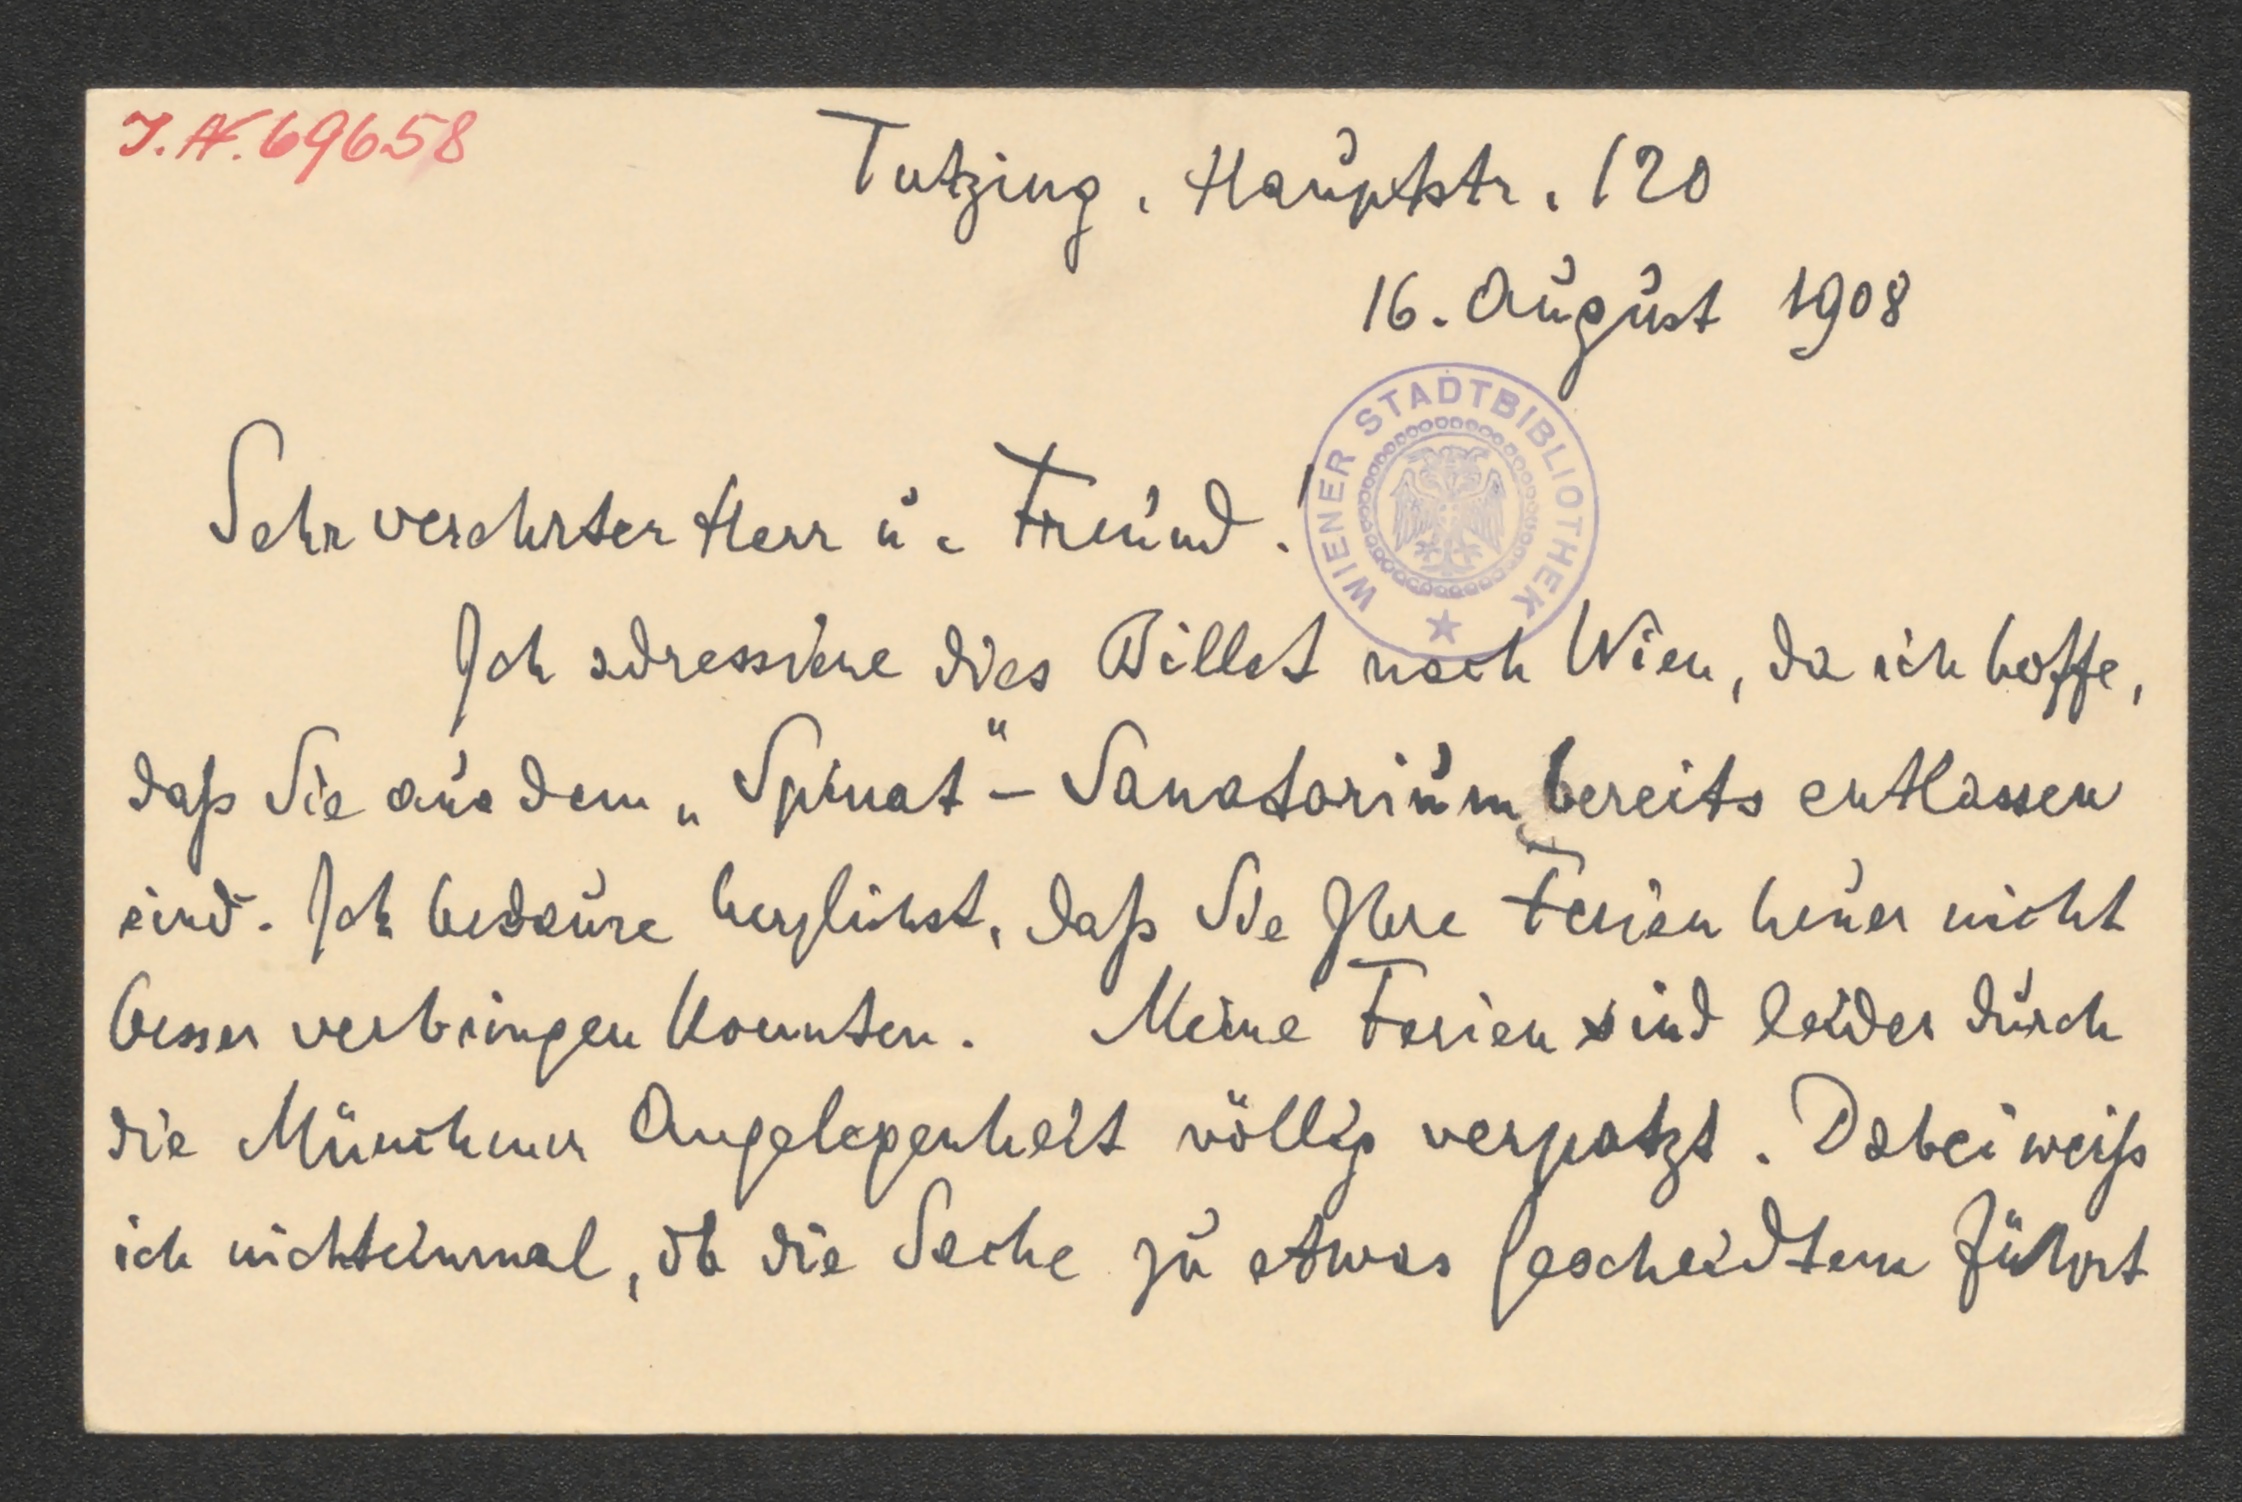 J.N. 69658
Tutzing, Hauptstr. 120
16. August 1908
WIENER STADTBIBLIOTHEK
Sehr verehrter Herr u. Freund!
Ich adressiere dies Billet nach Wien, da ich hoffe,
daß Sie aus dem „Spinat“-Sanatorium bereits entlassen
sind. Ich bedaure herzlichst, daß Sie Ihre Ferien heuer nicht
besser verbringen konnten. Meine Ferien sind leider durch
die Münchner Angelegenheit völlig verpatzt. Dabei weiß
ich nichteinmal, ob die Sache zu etwas Gescheidtem führt